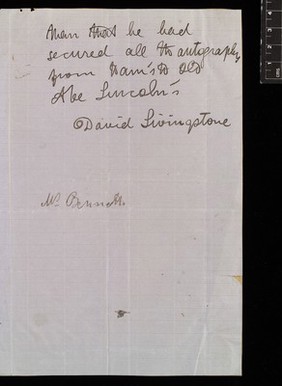 man that he had
secured all the autographs
from Nam's to Old
Abe Lincoln's
David Livingstone
Mr Bennett